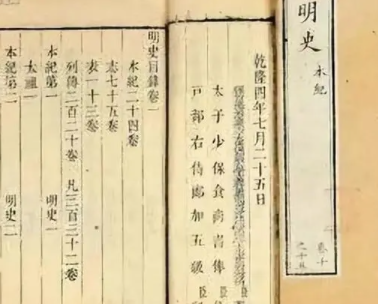 明史 本紀
卷十
之十五
乾隆四年七月二十五日
太子少保食尚書俸
戸部右侍郎加五級
臣
臣
明史目錄卷一
本紀二十四卷
志七十五卷
表一十三卷
列傳二百二十卷 凡三百三十二卷
本紀第一 明史一
太祖一
本紀第二 明史二